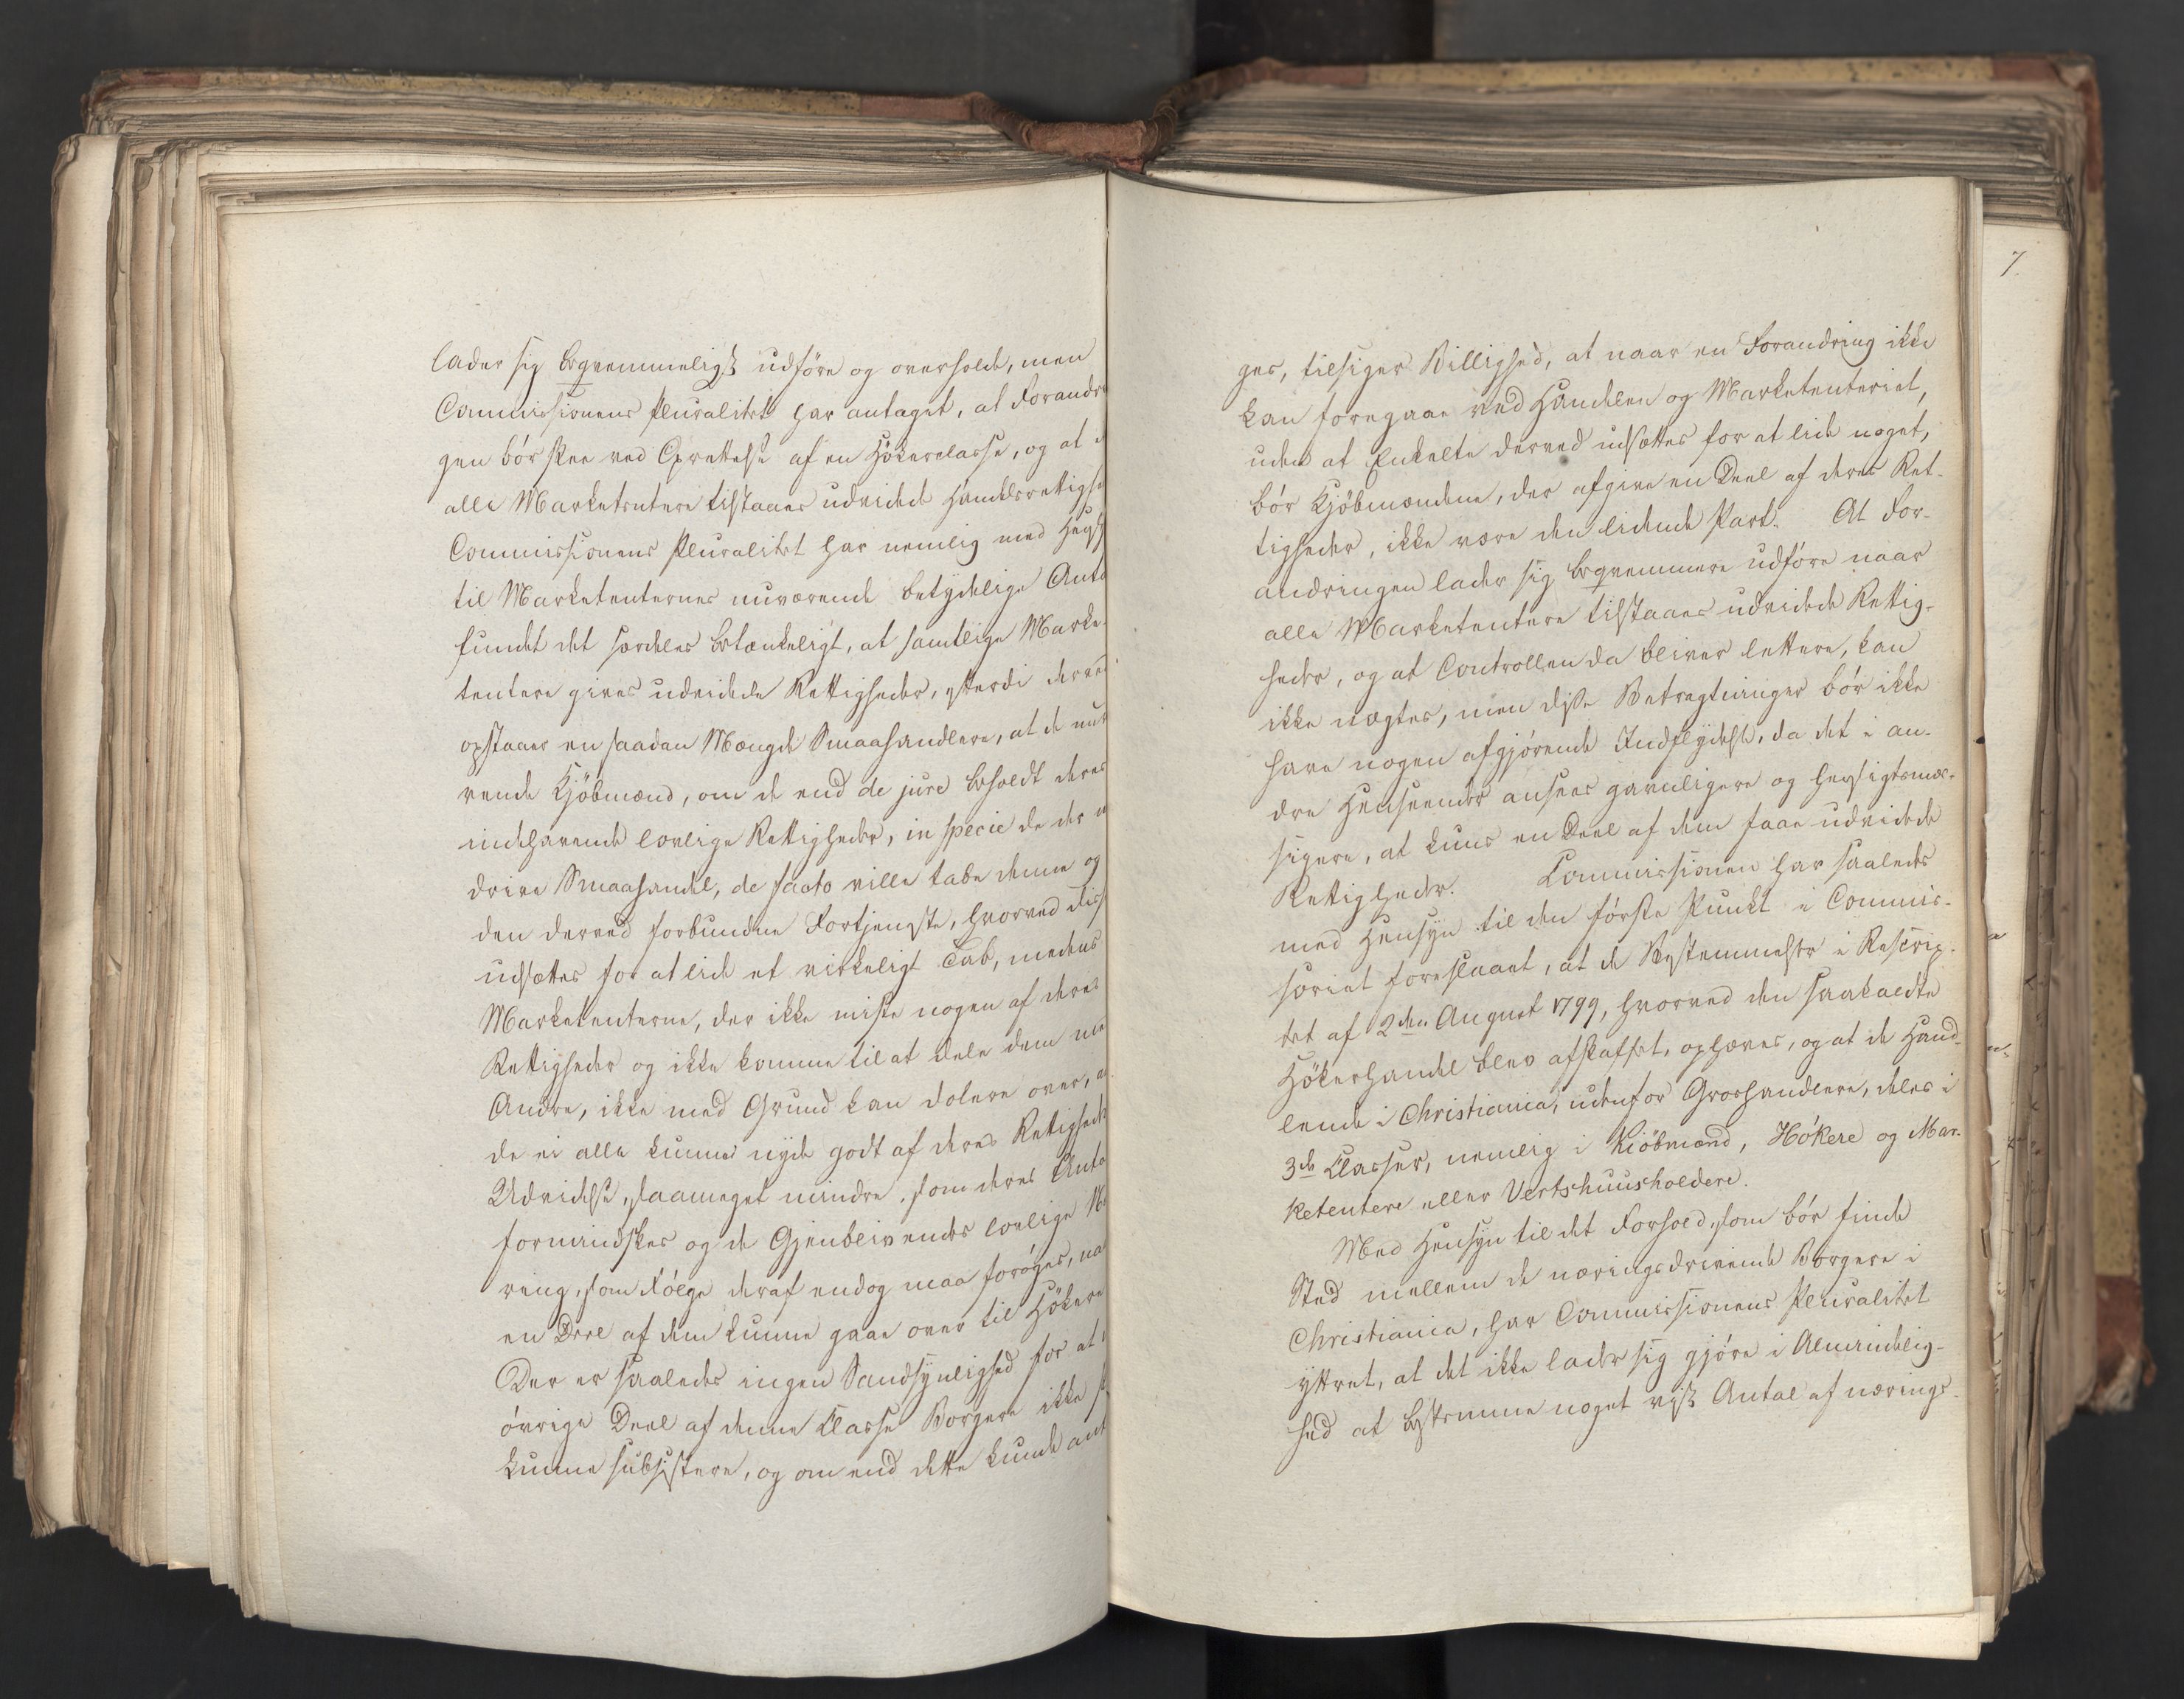 lader sig beqvemmeligst udföre og overholde, men
Commissionens Pluralitet har antaget, at Forandr
gen bör skee ved Oprettelse af en Hökerclasse, og at
alle Marketentere tilstaaes udvidede Handelsrettigh
Commissionens Pluralitet har nemlig med Hens
til Marketenternes nuværende betydelige Anta
fundet det særdeles betænkeligt, at samtlige Marke-
tentere gives udvidede Rettigheder, efterdi derved
opstaaer en saadan Mængde Smaahandlere, at de nuv
rende Kjöbmænd, om de end de jure beholdt deres
indehavende lovlige Rettigheder, in specie de der
drive Smaahandel, de facto ville tabe denne og
den derved forbundne Fortjeneste, hvorved diss
udsættes for at lide et virkeligt Tab, medens
Marketenterne, der ikke miste nogen af deres
Rettigheder og ikke komme til at dele dem me
Andre, ikke med Grund kan dolere over, a
de ei alle kunne nyde godt af deres Rettighed
Udvidelse, saameget mindre, som deres Anta
formindskes og de Gjenblivendes lovlige N
ring, som Fölge deraf endog maa foröges, naa
en Deel af dem kunne gaae over til Hökere
Der er saaledes ingen Sandsynlighed for at
övrige Deel af denne Classe Borgere ikke s
kunne subsistere, og om end dette kunde ant
7.
ges, tilsiger Billighed, at naar en Forandring ikke
kan foregaae ved Handelen og Marketenteriet,
uden at Enkelte derved udsættes for at lide noget,
bör Kjöbmændene, der afgive en Deel af deres Ret-
tigheder, ikke være den lidende Part. At For-
andringen lader sig beqvemmere udföre naar
alle Marketentere tilstaaes udvidede Rettig-
heder, og at Controllen da bliver lettere, kan
ikke nægtes, men disse Betragtninger bör ikke
have nogen afgjörende Indflydelse, da det i an-
dre Henseender ansees gavnligere og hensigtsmæs-
sigere, at kuns en Deel af dem faae udvidede
Rettigheder. Commissionen har saaledes
med Hensyn til den förste Punkt i Commis-
soriet foreslaaet, at de Bestemmelser i Rescrip-
tet af 2den August 1799, hvorved den saakaldte
Hökerhandel blev afskaffet, ophæves, og at de Hand-
lende i Christiania, udenfor Groshandlere, deles i
3de Classer, nemlig i Kiöbmænd, Hökere og Mar-
ketentere eller Vertshuusholdere.
Med Hensyn til det Forhold, som bör finde
Sted mellem de næringsdrivende Borgere i
Christiania, har Commissionens Pluralitet
yttret, at det ikke lader sig gjöre i Almindelig-
hed at bestemme noget vist Antal af nærings-